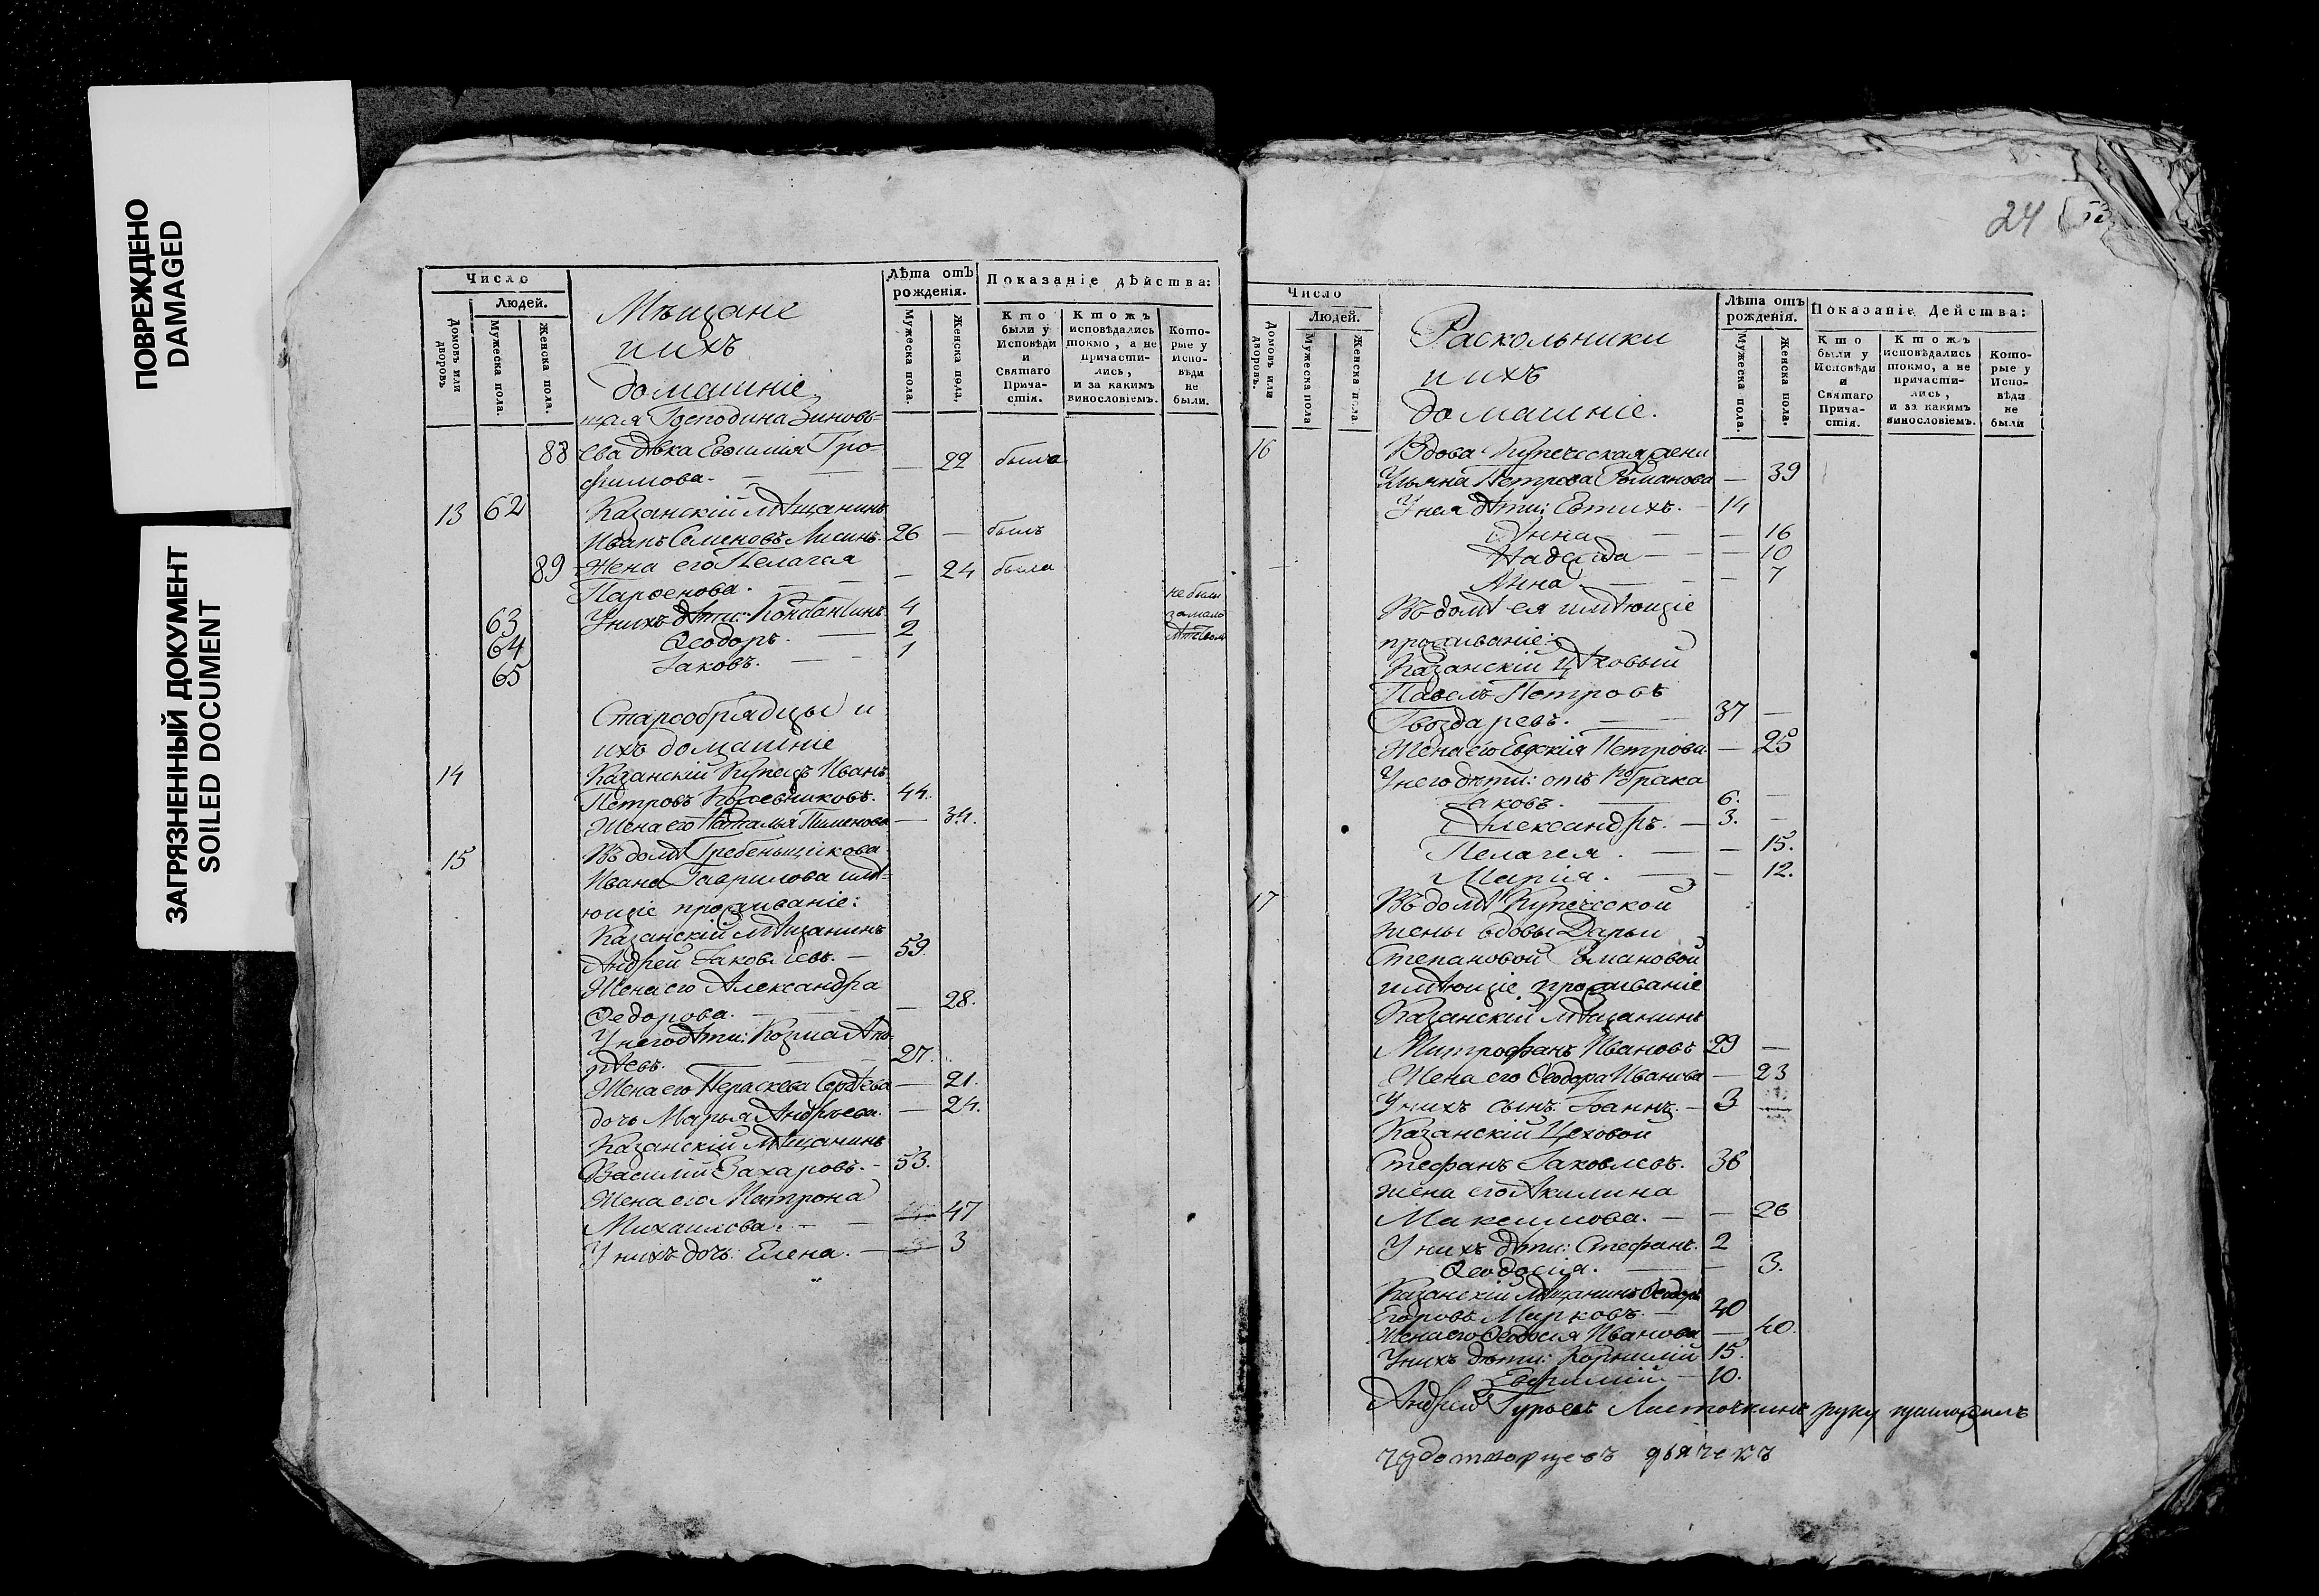 ПОВРЕЖДЕНО
DAMAGED
ЗАГРЯЗНЕННЫЙ ДОКУМЕНТ
SOILED DOCUMENT
Число
Людей.
Домовъ или дворовъ
Мужеска пола.
Женска пола.
Мѣщане
и ихъ
домашніе
Лѣта отъ рожденія.
Мужеска пола.
Женска пола,
Показаніе дѣйства:
Кто были у Исповѣди и Святаго Прича-стія.
Ктожъ исповѣдались токмо, а не причасти-лись, и за какимъ винословіемъ.
Кото-рые у Испо-вѣди не были.
щая Господина Зиновь-
88 ева дѣвка Евѳимія Тро- — 22 была
фимова. —
13 62 Казанскій мѣщанинъ
Иванъ Семеновъ Лисинъ. 26 — былъ
89 Жена его Пелагея — 24 была
Парѳенова. — не были
63 У нихъ дѣти: Константинъ 4 за мало
64 Ѳеодоръ. — 2 лѣтствомъ
65 Іаковъ. — 1
Старообрядцы и
ихъ домашніе
14 Казанскій Купецъ Иванъ
Петровъ Кожевниковъ. 44.
Жена его Наталья Пименова — 34.
15 Въ домѣ Гребеньщикова
Ивана Гаврилова имѣ-
ющіе проживаніе:
Казанскій мѣщанинъ
Андрей Іаковлевъ. — 59.
Жена его Александра
Ѳедорова. — 28.
У него дѣти: Козма Анд-
рѣевъ. — 27.
Жена его Параскева Сергѣева — 21.
дочь Марья Андрѣева. — 24.
Казанскій мѣщанинъ
Василій Захаровъ. — 53.
Жена его Матрона
Михаилова. — 47
У нихъ дочь: Елена. — 3
24
Число
Людей.
Домовъ или дворовъ.
Мужеска пола
Женска пола.
Раскольники
и ихъ
домашніе.
Лѣта отъ рожденія.
Мужеска пола.
Женска пола.
Показаніе Действа:
Кто были у Исповѣди и Святаго Прича-стія.
Ктожъ исповѣдались токмо, а не причасти-лись, и за какимъ винословіемъ.
Кото-рые у Испо-вѣди не были
16 Вдова Купеческая жена
Ульяна Петрова Романова — 39
У нея дѣти: Евтихъ. — 14
Анна — — 16
Надежда — — 10
Анна — — 7
Въ домѣ ея имѣющіе
проживаніе:
Казанскій цѣховый
Павелъ Петровъ
Гвоздаревъ. — 37 —
Жена его Евдокія Петрова — 25
У него дѣти: отъ 1го брака
Іаковъ. — 6. —
Александръ. — 3. —
Пелагея. — — 15.
Марія. — — 12.
17 Въ домѣ Купеческой
жены вдовы Дарьи
Степановой Романовой
имѣющіе проживаніе
Казанскій Мѣщанинъ
Митрофанъ Ивановъ 29 —
Жена его Ѳеодора Иванова — 23
У нихъ сынъ Іоаннъ. — 3
Казанскій Цеховой
Стефанъ Іаковлевъ. 36
жена его Акилина
Максимова. — — 26
У нихъ дѣти: Стефанъ. 2
Ѳеодосія. — 3.
Казанскій Мѣщанинъ Ѳеодоръ
Егоровъ Марковъ. — 40
Жена его Ѳеодосія Иванова — 40.
У нихъ дѣти: Корнилій 15.
Евфимій — 10.
Андрей Гурьевъ Листочкинъ руку приложилъ
чудотворцевъ дьячекъ